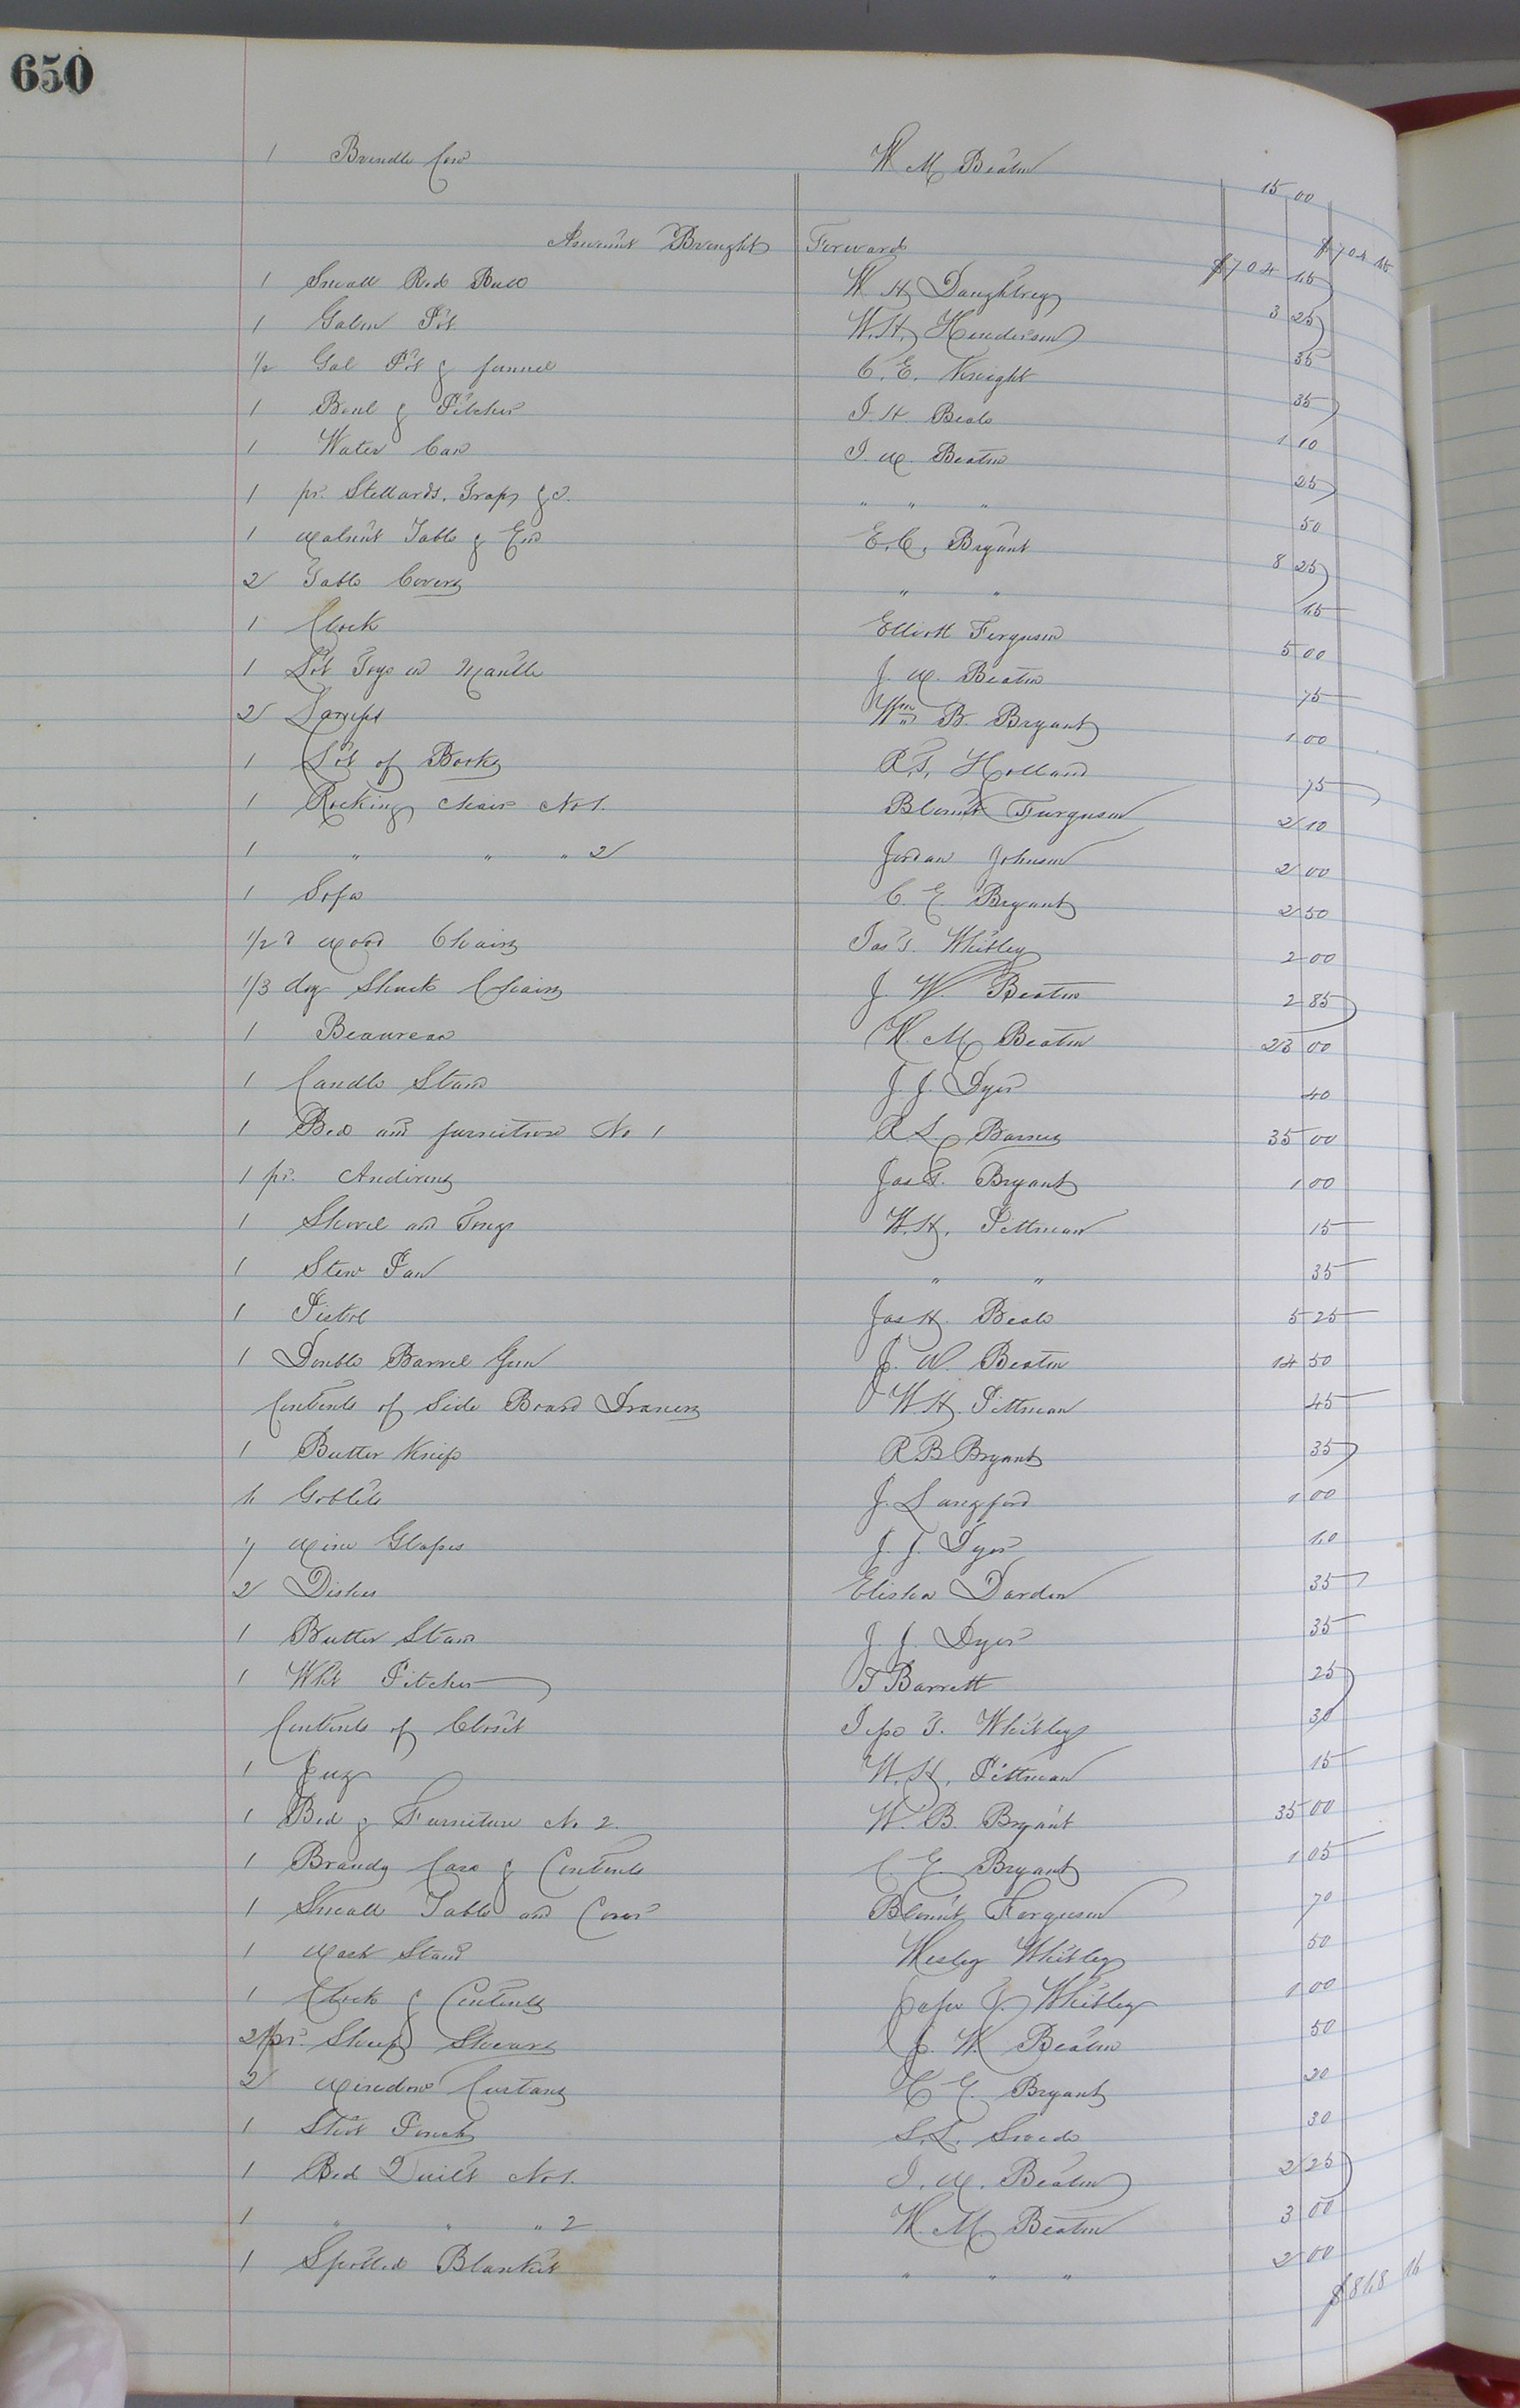 650
1 Brindle Cow W M Beaton 15 00
$704 15
Amount Brought Forward $704 15
1 Small Red Bull W H Daughtrey 3 25
1 Galon Pot W. H. Henderson 35
1/2 Gal Pot & funnel C. E. Knight 35
1 Bowl & Pitcher J H Beale 1 10
1 Water Can J. W. Beaton 25
1 pr. Stellards. Traps &c. " " " 50
1 Walnut Table & E. C. Bryant 8 25
2 Table Covers " " 15
1 Clock Elliott Ferguson 5 00
1 Lot Toys on Mantle J. W. Beaton 75
2 Lamps Wm B. Bryant 1 00
1 Lot of Books R. T. Holland 75
1 Rocking Chair No 1. Blount Furguson 2 10
1 " " " 2 Jordan Johnson 2 00
1 Sofa C. E. Bryant 2 50
1/2 d Wood Chairs Jas T. Whitley 2 00
1/3 doz Shuck Chairs J. W. Beaton 2 85
1 Beaureau W. M. Beaton 23 00
1 Candle Stand J. J. Dyer 40
1 Bed and furniture No 1 R L Barnes 35 00
1 pr. Andirons Jas T. Bryant 1 00
1 Shovel and Tongs W. H. Pittman 15
1 Stew Pan " " 35
1 Pistol Jas H. Beale 5 25
1 Double Barrel Gun J. W. Beaton 14 50
Contents of Side Board Drawers W. H. Pittman 45
1 Butter Knife R B Bryant 35
6 Goblets J. Langford 1 00
7 Wine Glasses J. J. Dyer 10
2 Dishes Elisha Darden 35
1 Butter Stand J. J. Dyer 35
1 Wht Pitcher T Barrett 25
Contents of Closet Jesse T. Whitley 30
1 Jug W. H. Pittman 15
1 Bed & Furniture No 2. W. B. Bryant 35 00
1 Brandy Case & Contents C. E. Bryant 1 05
1 Small Table and Cover Blount Ferguson 70
1 Wash Stand Wesley Whitley 50
1 & Contents J. Whitley 1 00
2 pr. Sheep Shears J. W. Beaton 50
2 Window Curtans C E. Bryant 20
1 Shot Pouch S. L. 30
1 Bed Quilt No 1. J. W. Beaton 2 25
1 " " " 2 W. M. Beaton 3 00
1 Spotted Blanket " " " 2 00
$868 16